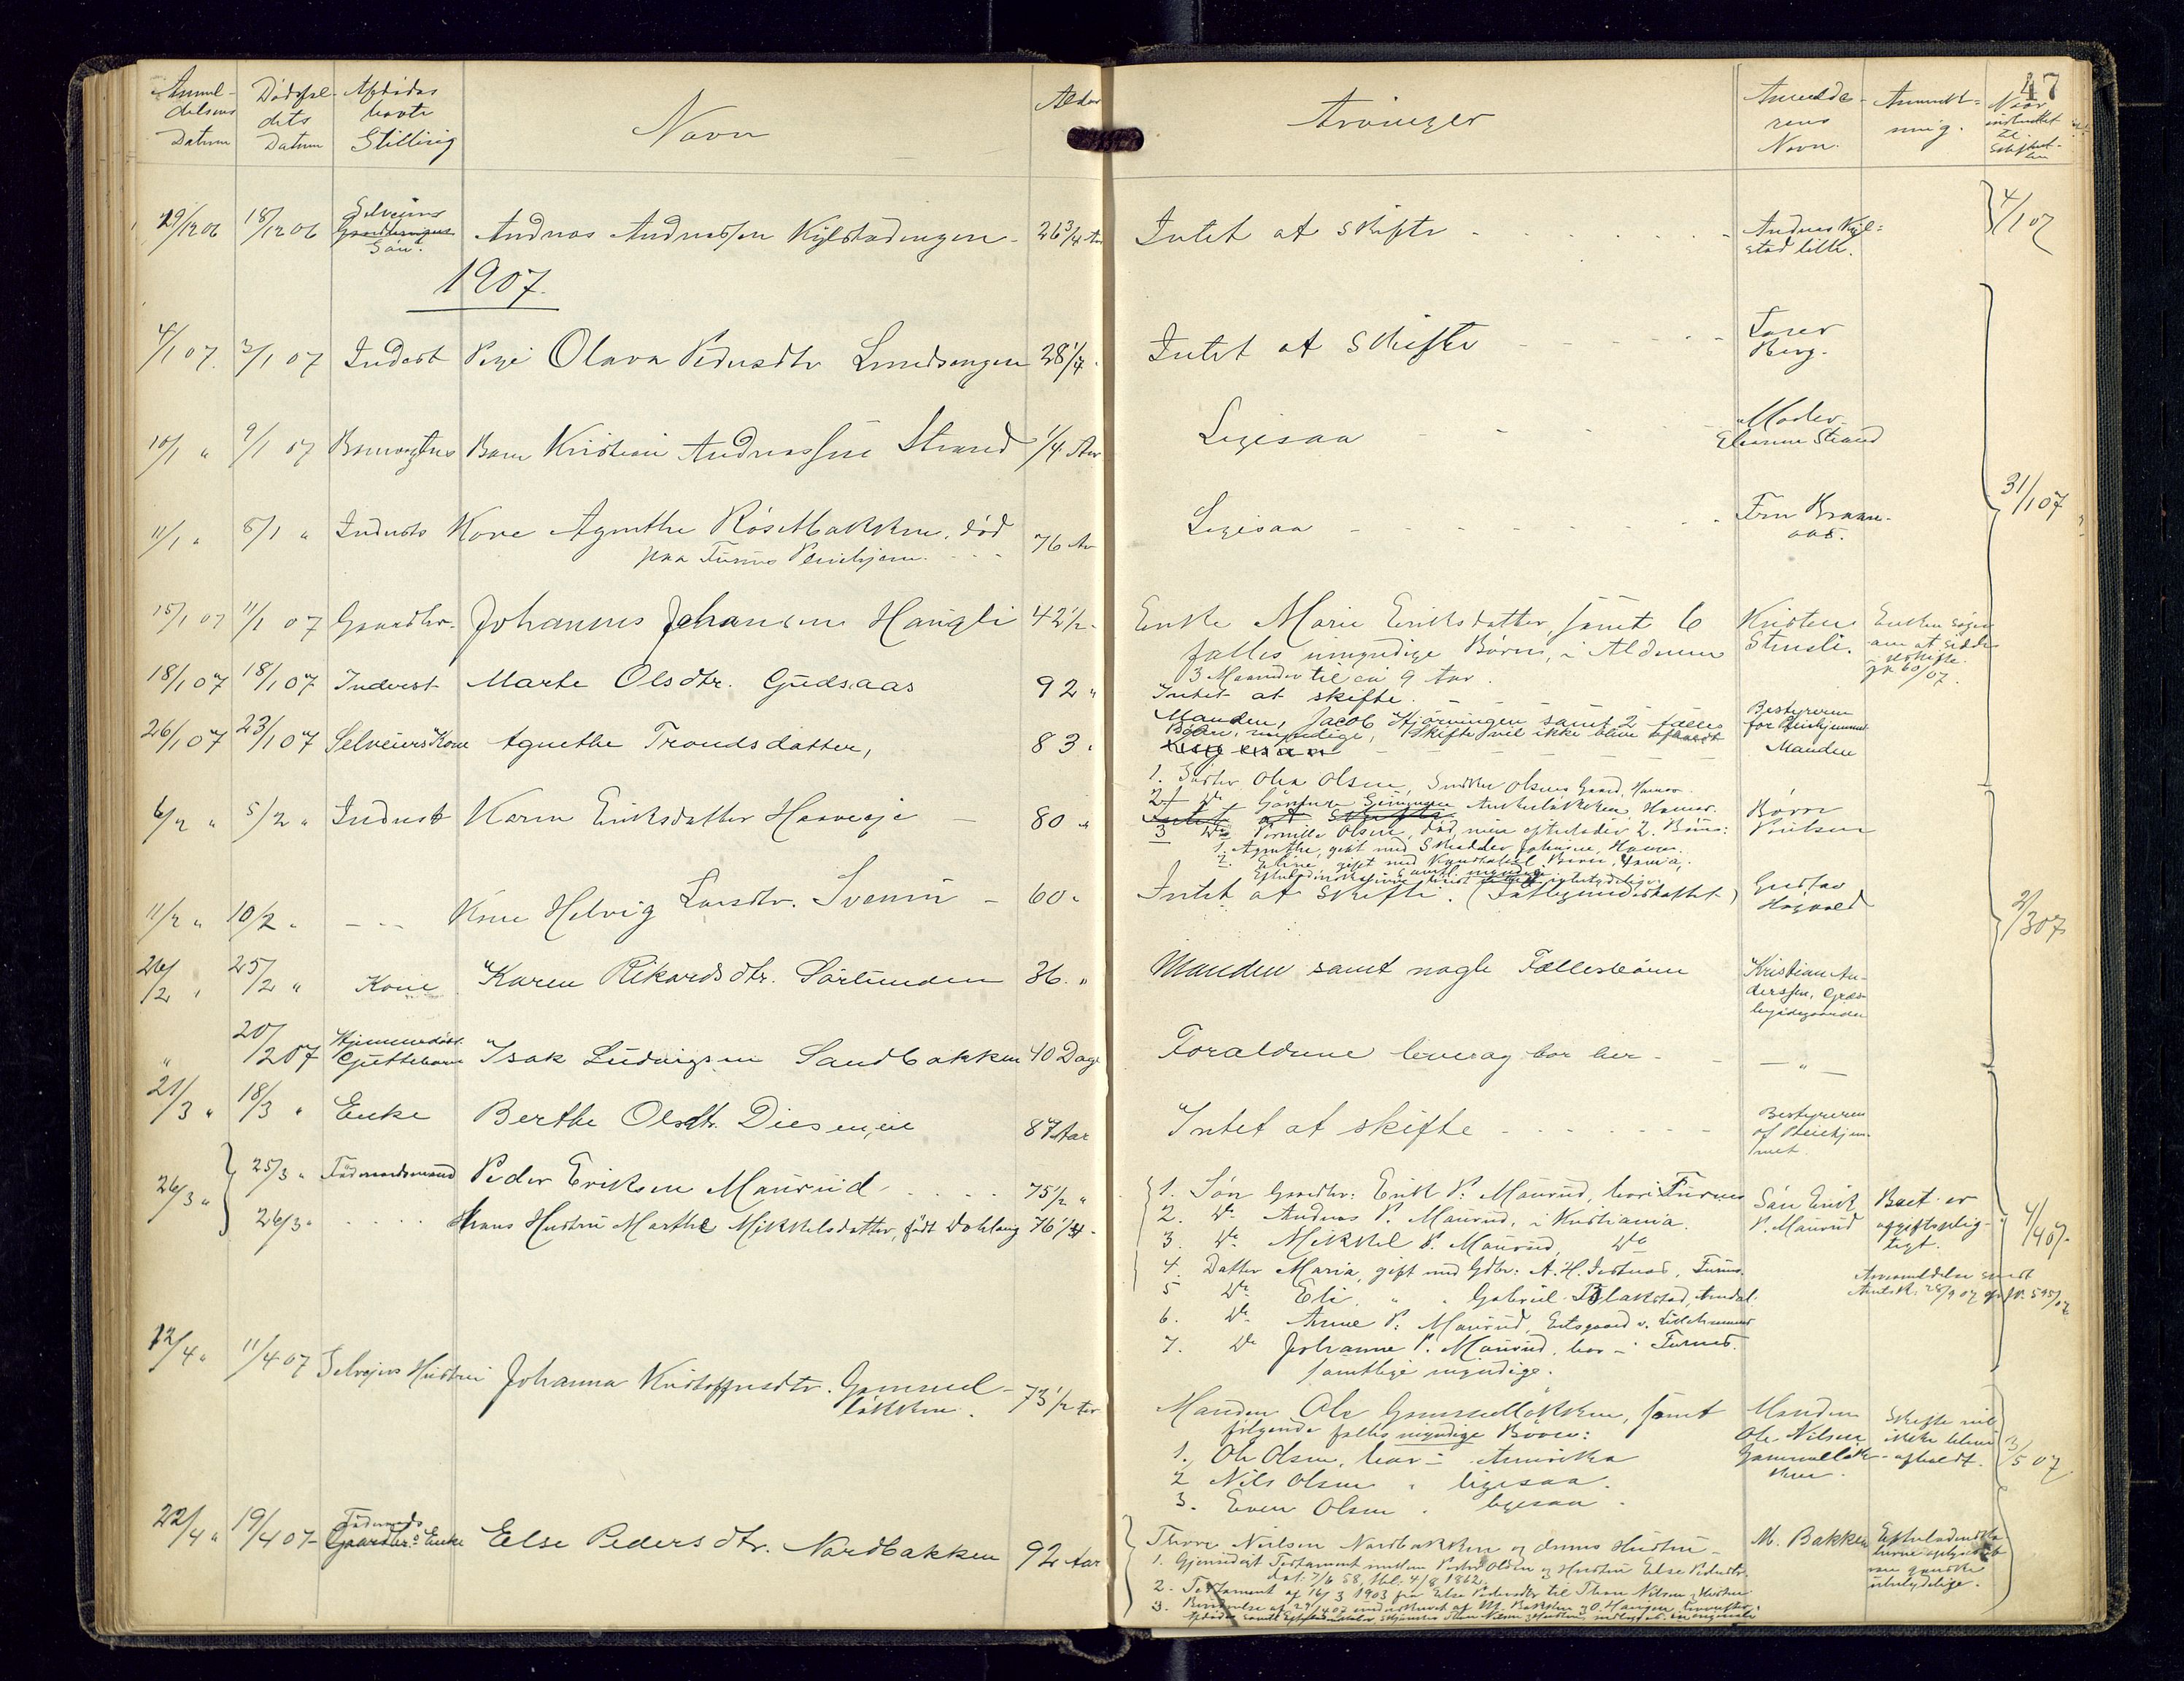 47
Anmel-
delsens
Datum
Dödsfal-
dets
Datum
Afdödes
havte
Stilling
Navn
Alder
Arvinger
Anmelde-
rens
Navn.
Anmerk-
ning.
Naar
indsendt
til
29/12 06 18/12 06 Selveiers Sön. Andreas Andreassen Kylstadengen 26 3/4 Aar Intet at skifte Andreas Kyl-
stad lille.
4/1 07
1907.
4/1 07. 3/1 07 Inderst Pige Olava Pedersdtr Lundsengen 28 1/4 Intet at skifte
Berg.
10/1 " 9/1 07 Barn Kristian Andreassen Strand 1/4 Aar Ligesaa Moder
Strand
11/1 " 8/1 " Indersts Kone Agnethe Röseltbakken, död
paa Furnes Pleiehjem. 76 Ar Ligesaa Fru
31/1 07
15/1 07 11/1 07 Gaardbr. Johannes Johansen Haugli 42 1/2 Enke Marie Eriksdatter, samt 6
fælles umyndige Börn, i Alderen
3 Maaneder til ca 9 Aar.
Kristen
Stensli.
Enken söger
om at sidde
i uskifte.
18/1 07 18/1 07 Inderst Marte Olsdtr. Gudsaas 92 " Intet at skifte.
Bestyreren
for Pleiehjemmet
26/1 07 23/1 07 Selveiers Kone Agnethe Trondsdatter, 83 " Manden, Jacob Hjörningen samt 2 fælles
Börn, myndige, Skifte vil ikke blive afholdt
Ligesaa
Manden
6/2 " 5/2 " Inderst Karen Eriksdatter Haaveje 80 " 1. Söster Olea Olsen, Snekker Olsens Gaard, Hamar.
2 do Ankerbakken, Hamar.
Intet at skifte
3 do Pernille Olsen, död, men efterlader 2 Börn:
1. Agnethe, gift med Skrædder Johnsen, Hamar.
2. Eline, gift med
samtl. myndige
11/2 " 10/2 " Kone Helvig Larsdtr. Sveum 60 " Intet at skifte. (Fattigunderstöttet)
Gustav
2/3 07
26/2 " 25/2 " Kone Karen Rikardsdtr. Sörlunden 36. " Manden samt nogle Fællesbörn Kristian An-
derssen,
" 20/2 07 Hjemmedöbt
Guttebarn Isak Ludvigsen Sandbakken 40 Dage Forældrene lever og bor her - " -
21/3 " 18/3 " Enke Berthe Olsdtr. Diesen, eie 87 Aar Intet at skifte Bestyreren
af Pleiehjem-
met
26/3 " 25/3 " Föderaadsmand Peder Eriksen Maurud 75 1/2 "
26/3 " Hans Hustru Marthe Mikkelsdatter, födt Dahlaug 76 1/4
1. Sön Gaardbr: Erik P. Maurud, bor i Furnes
2. do Andreas P. Maurud, i Kristiania.
3. do Mikkel P. Maurud, do
4. Datter Maria, gift med Gdbr: A. H. Furnes.
5 do Eli " " Gabriel Blakstad, Arendal.
6. do Anne P. Maurud, v. Lillehammer
7. do Johanne P. Maurud, bor i Furnes.
samtlige myndige.
Sön Erik
P. Maurud
Boet er
afgiftsplig-
tigt.
4/4 07.
12/4 " 11/4 07 Selveiers Hustru Johanna Kristoffersdtr. Gammel-
lökken. 73 1/2 Aar
Manden Ole Gammellökken, samt
fölgende fælles myndige Börn:
1. Ole Olsen, bor i Amerika
2 Nils Olsen " ligesaa.
3. Even Olsen " ligesaa
Manden
Ole Nilsen
Gammellök-
ken
Skifte vil
ikke blive
afholdt.
3/5 07
22/4 " 19/4 07 Föderaads
Gaardbr.s Enke Else Pedersdtr. Nordbakken 92 Aar
Thore Nilsen Nordbakken og dennes Hustru
1. Gjensidigt Testament mellem Peder Olsen og Hustru Else Pedersdtr.
dat. 7/6 58, tbl. 4/8 1862.
2. Testament af 16/3 1903 fra Else Pedersdtr til Thore Nilsen og Hustru
3.
M. Bakken
Efterladenska-
berne
ubetydelige.